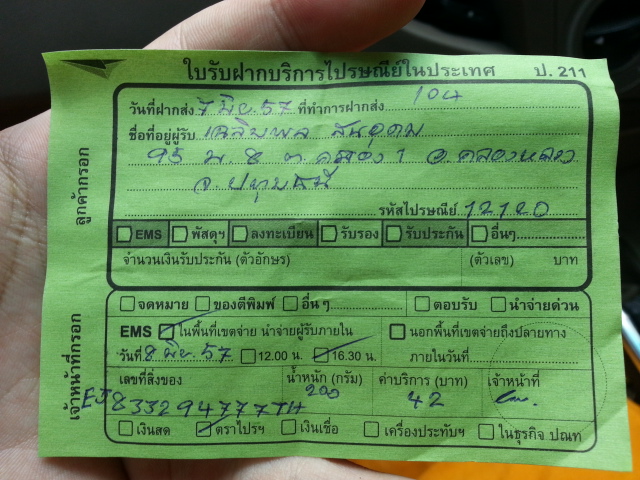 ใบรับฝากบริการไปรษณีย์ในประเทศ ป. 211
วันที่ฝากส่ง 7 มิย. 57 ที่ทำการฝากส่ง 104
ชื่อที่อยู่ผู้รับ เฉลิมพล สันอุดม
95 ม. 8 ต. คลอง 1 อ. คลองหลวง
จ. ปทุมธานี
รหัสไปรษณีย์ 12120
EMS พัสดุฯ ลงทะเบียน รับรอง รับประกัน อื่นๆ
จำนวนเงินรับประกัน (ตัวอักษร) (ตัวเลข) บาท
ลูกค้ากรอก
จดหมาย ของตีพิมพ์ อื่น ๆ ตอบรับ นำจ่ายด่วน
EMS ในพื้นที่เขตจ่าย นำจ่ายผู้รับภายใน นอกพื้นที่เขตจ่ายถึงปลายทาง
วันที่ 8 มิย. 57 12.00 น. 16.30 น. ภายในวันที่
เลขที่สิ่งของ น้ำหนัก (กรัม) ค่าบริการ (บาท) เจ้าหน้าที่
EJ833294777TH 200 42
เงินสด ตราไปรฯ เงินเชื่อ เครื่องประทับฯ ในธุรกิจ ปณท
เจ้าหน้าที่กรอก